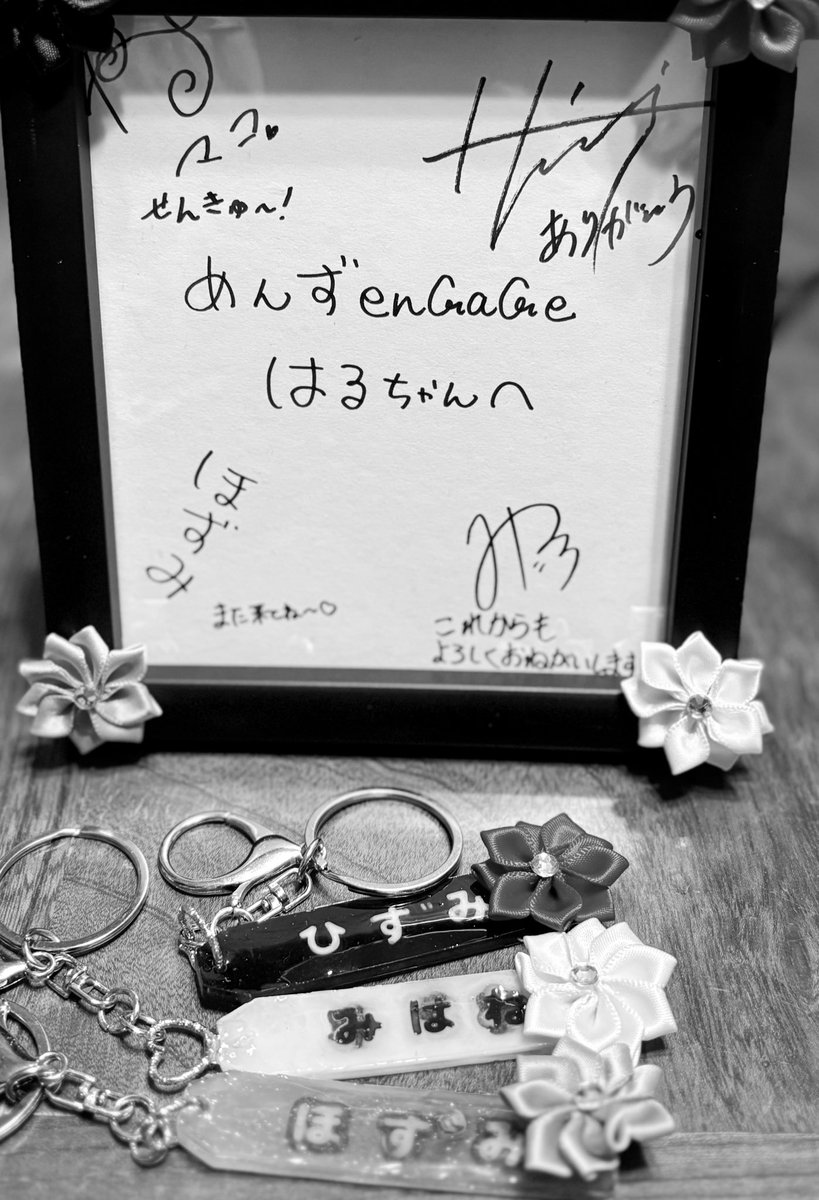 せんきゅ〜!
ありがとう
めんずenGaGe
はるちゃんへ
ほずみ
また来てね〜♡
これからも
よろしくおねがいします
ひずみ
みはね
ほずみ